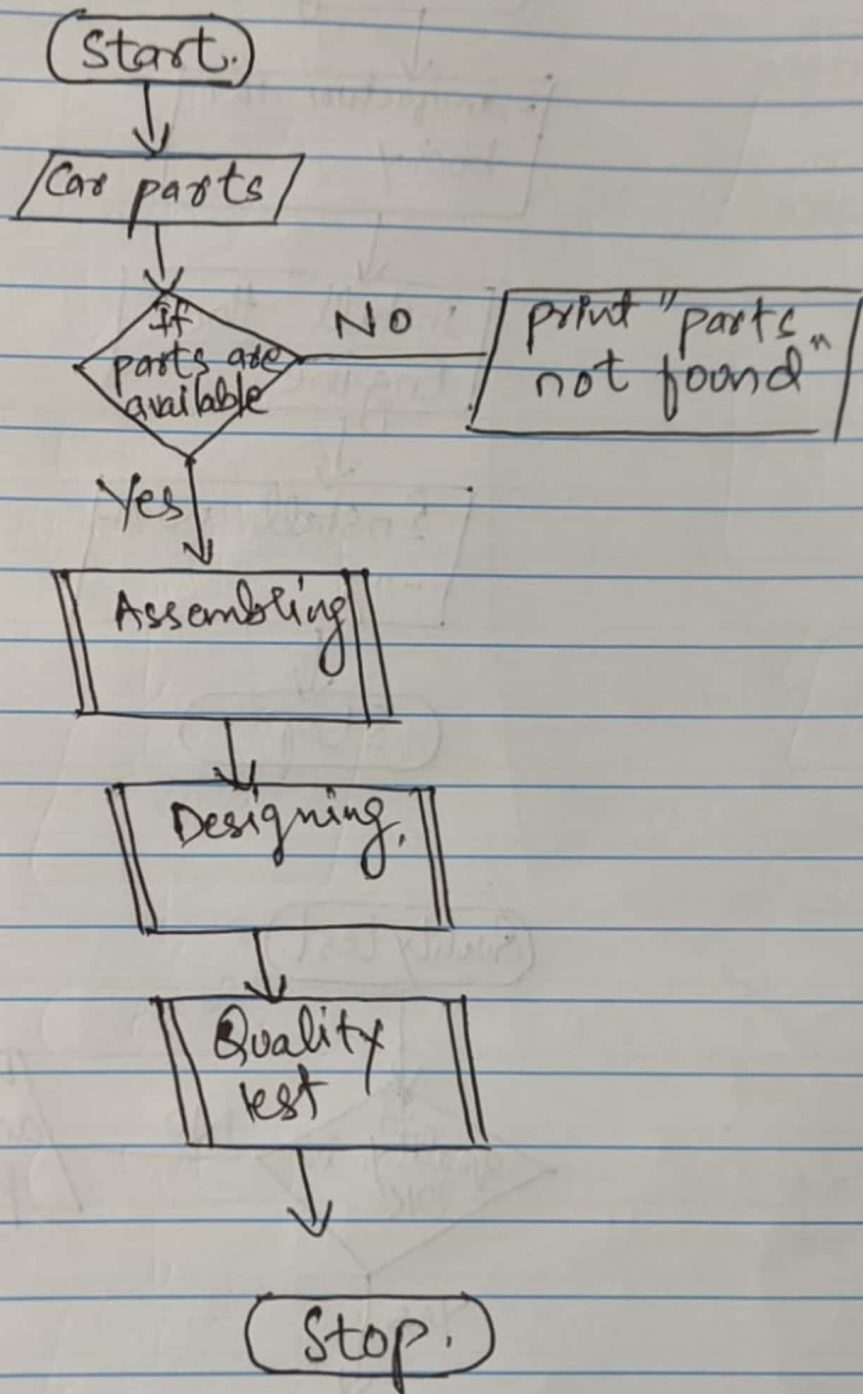 Start.
Car parts
If
parts are
available
NO
print "parts
not found"
Yes
Assembling
Designing.
Quality
test
Stop.